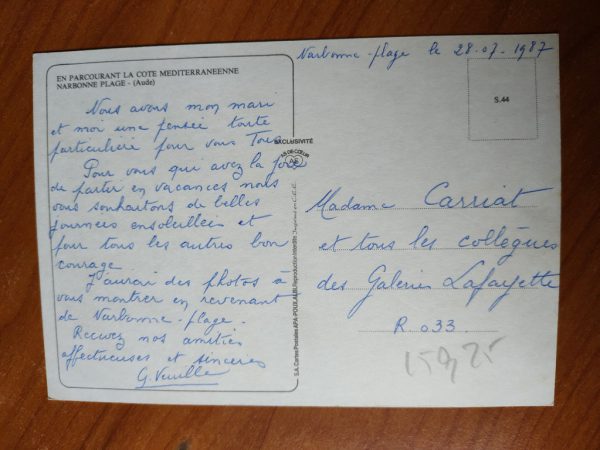 EN PARCOURANT LA COTE MEDITERRANEENNE
NARBONNE PLAGE - (Aude)
Narbonne-plage le 28.07.1987
Nous avons mon mari
et moi une pensée toute
particulière pour vous Tous.
Pour vous qui avez la joie
de partir en vacances nous
vous souhaitons de belles
journées ensoleillées et
pour tous les autres bon
courage
J'aurai des photos à
vous montrer en revenant
de Narbonne-plage.
Recevez nos amitiés
affectueuses et sincères
G. Veuille
EXCLUSIVITÉ
AS DE CŒUR
S.A. Cartes Postales APA-POUX ALBI Reproduction Interdite
S.44
Madame Carriat
et tous les collègues
des Galeries Lafayette
R. 033.